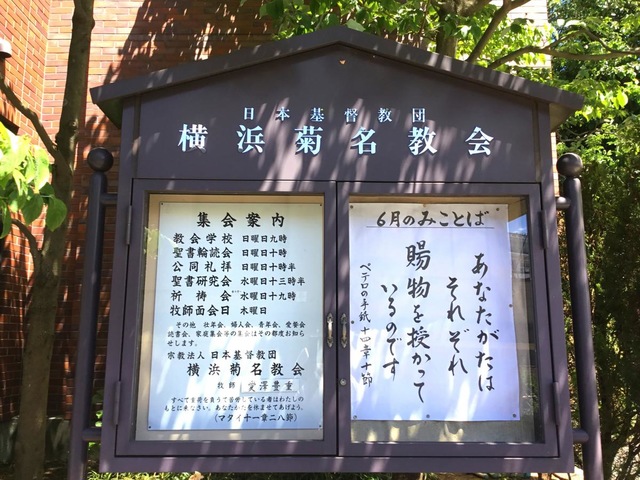 日本基督教団
横浜菊名教会
集会案内
教会学校 日曜日九時
聖書輪読会 日曜日十時
公同礼拝 日曜日十時半
聖書研究会 水曜日十三時半
祈祷会 水曜日十九時
牧師面会日 木曜日
その他 壮年会、婦人会、青年会、愛餐会
読書会、家庭集会等の集会はその都度お知ら
せします。
宗教法人 日本基督教団
横浜菊名教会
牧師 愛澤豊重
すべて重荷を負うて苦労している者はわたしの
もとに来なさい。あなたがたを休ませてあげよう。
(マタイ十一章二八節)
6月のみことば
あなたがたは
それぞれ
賜物を授かって
いるのです
ペテロの手紙一4章10節